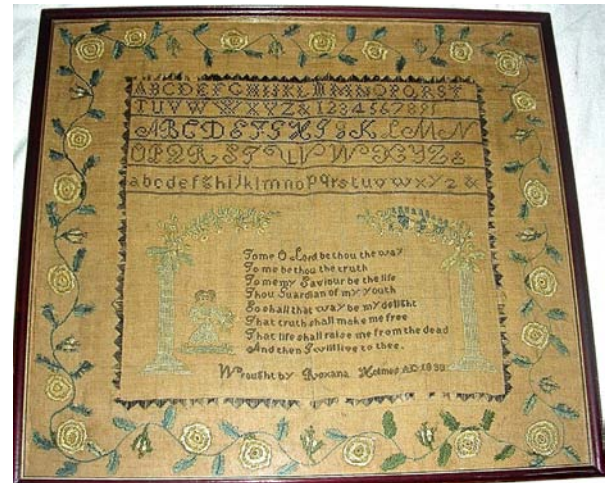 ABCDEFGHIJKLMNOPQRST
TUVWXYZ& 1234567891
ABCDEFGHIJKLMN
OPQRSTUVWXYZ&
abcdefghijklmnopqrstuvwxyz&
To me O Lord be thou the way
To me be thou the truth
To me my Saviour be the life
Thou Guardian of my youth
So shall that way be my delight
That truth shall make me free
That life shall raise me from the dead
And then I will live to thee.
Wrought by Roxana Holmes AD 1830